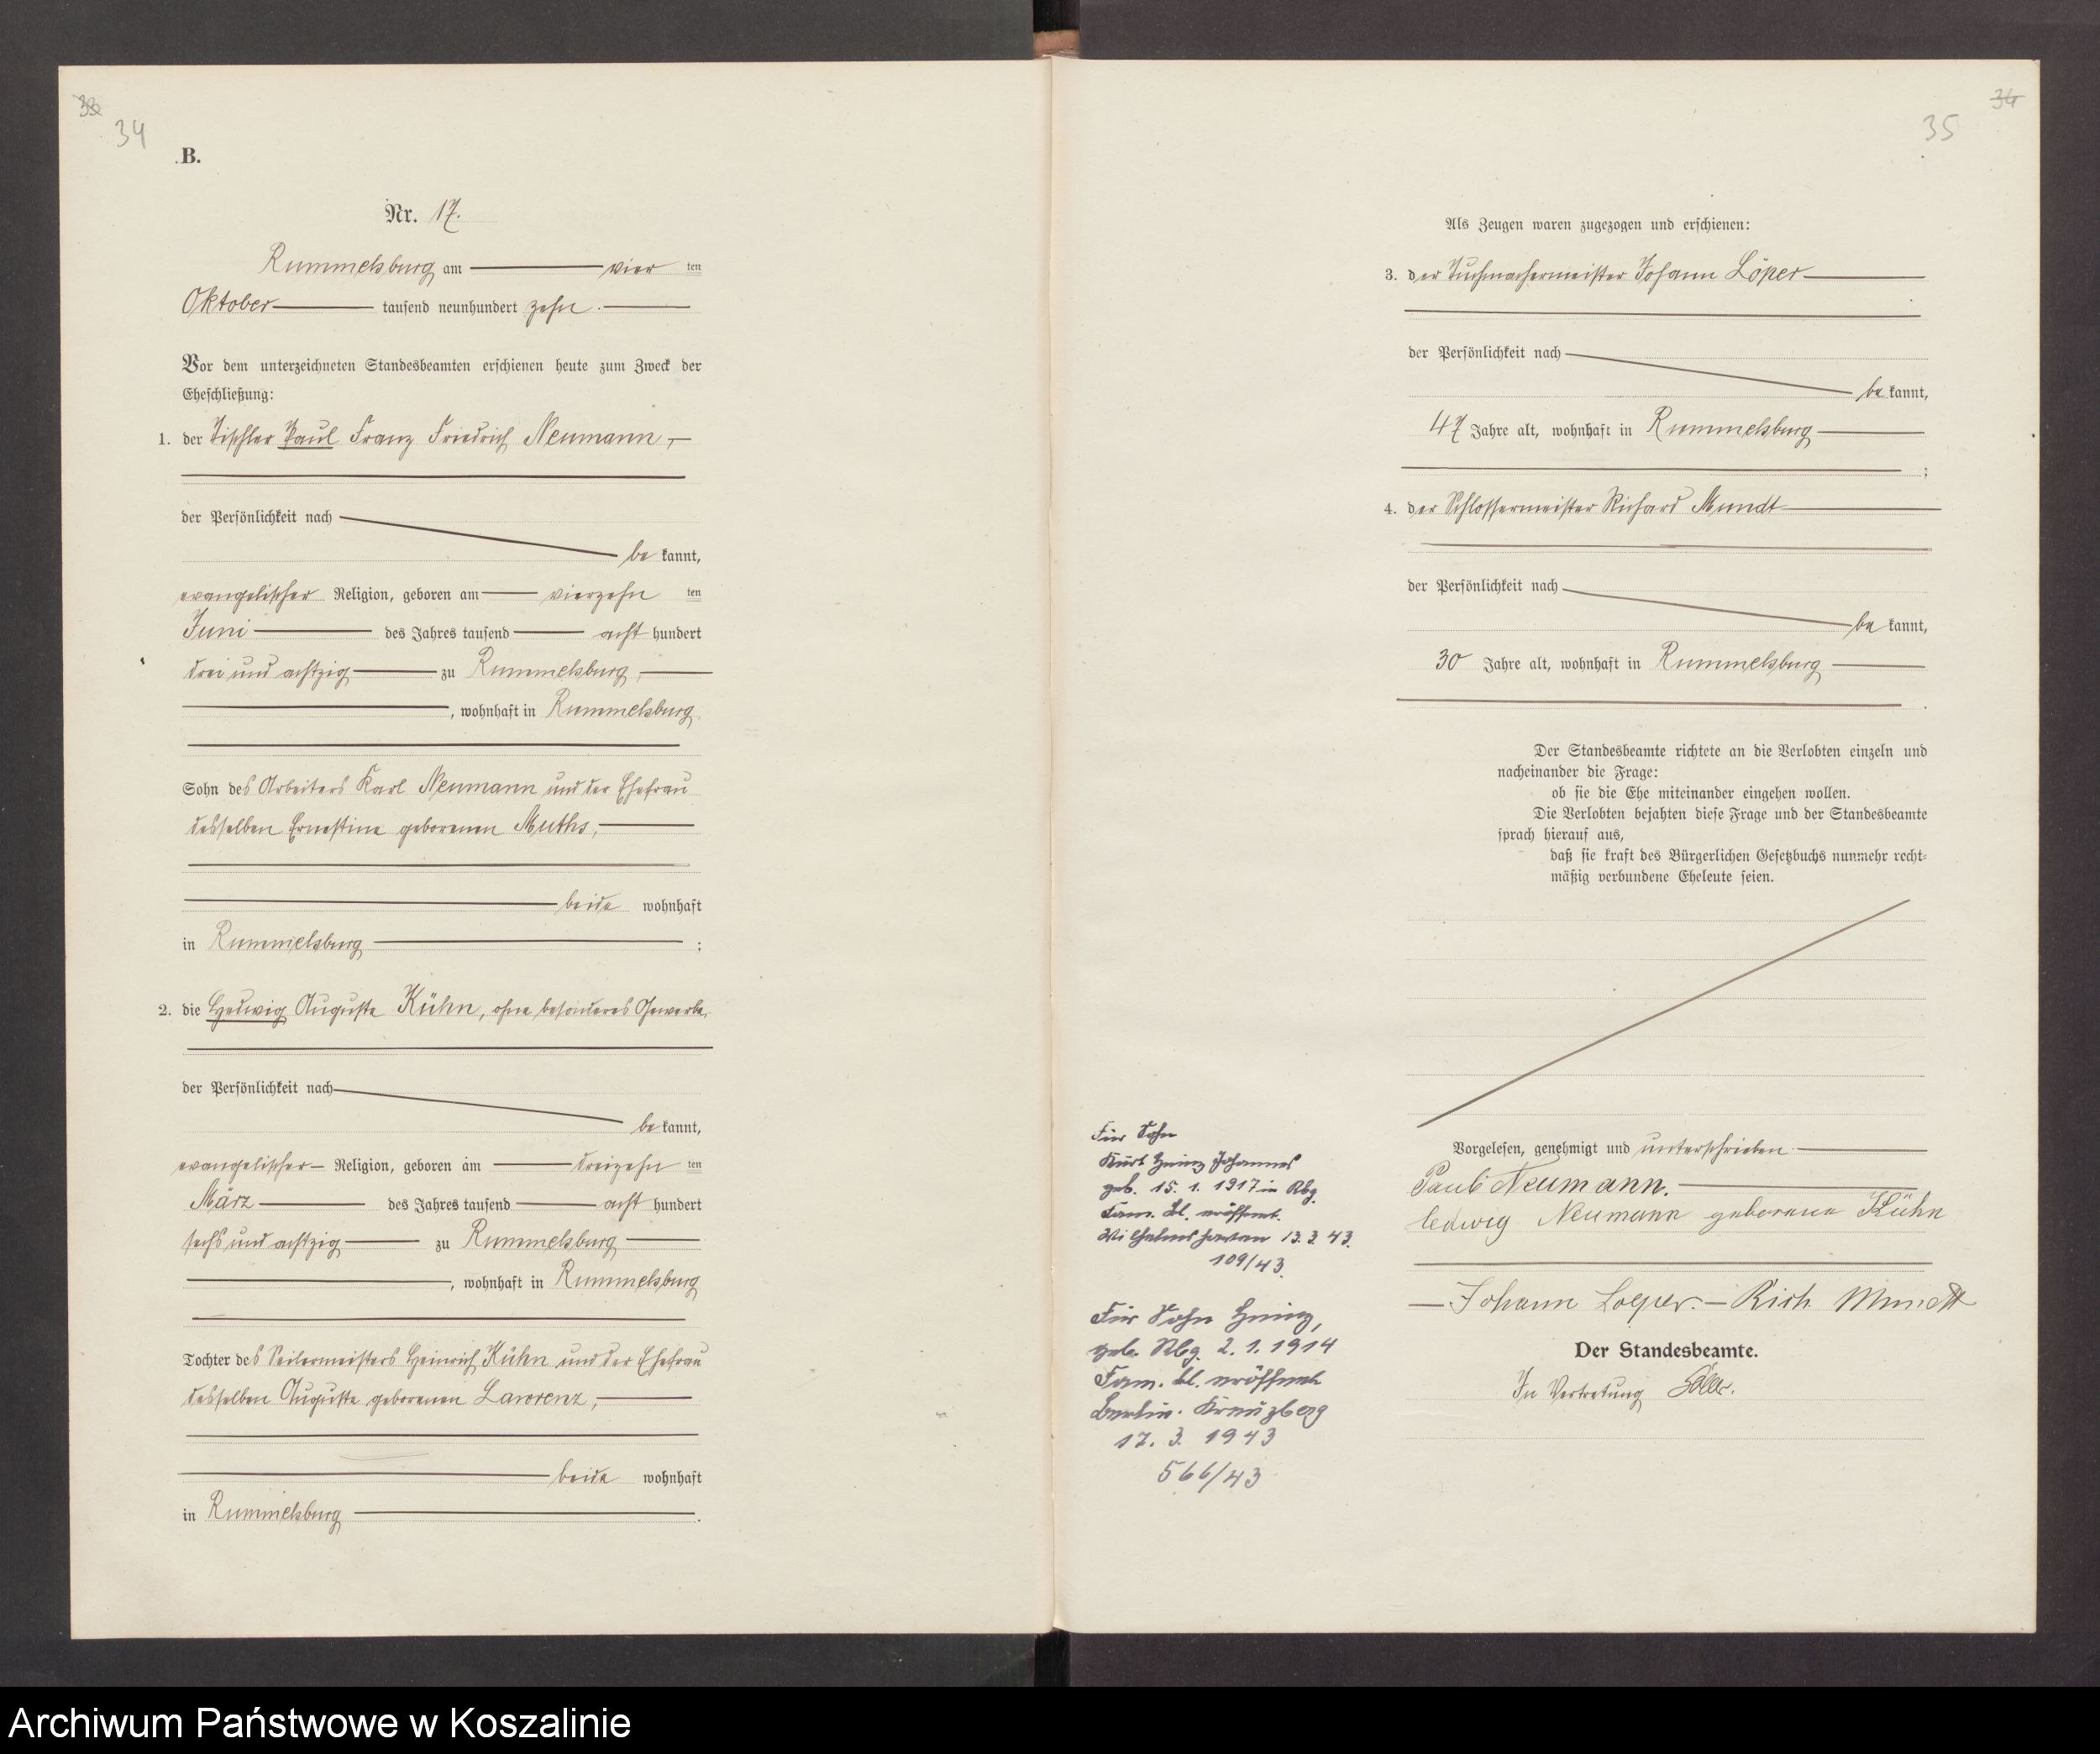 34
B.
Nr. 17.
Rummelsburg am vier ten
Oktober tausend neunhundert zehn.
Vor dem unterzeichneten Standesbeamten erschienen heute zum Zweck der
Eheschließung:
1. der Tischler Paul Franz Friedrich Neumann,
der Persönlichkeit nach
be kannt,
evangelischer Religion, geboren am vierzehn ten
Juni des Jahres tausend acht hundert
drei und achtzig zu Rummelsburg,
, wohnhaft in Rummelsburg
Sohn des Arbeiters Karl Neumann und der Ehefrau
desselben Ernestine geborenen Muths,
beide wohnhaft
in Rummelsburg ;
2. die Hedwig Auguste Kühn, ohne besonderes Gewerbe,
der Persönlichkeit nach
be kannt,
evangelischer Religion, geboren am dreizehn ten
März des Jahres tausend acht hundert
sechs und achtzig zu Rummelsburg
, wohnhaft in Rummelsburg
Tochter des Seilermeisters Heinrich Kühn und der Ehefrau
desselben Auguste geborenen Lawrenz,
beide wohnhaft
in Rummelsburg .
34
35
Als Zeugen waren zugezogen und erschienen:
3. der Tuchmachermeister Johann Löper
der Persönlichkeit nach
be kannt,
47 Jahre alt, wohnhaft in Rummelsburg
;
4. der Schlossermeister Richard Mundt
der Persönlichkeit nach
be kannt,
30 Jahre alt, wohnhaft in Rummelsburg
.
Der Standesbeamte richtete an die Verlobten einzeln und
nacheinander die Frage:
ob sie die Ehe miteinander eingehen wollen.
Die Verlobten bejahten diese Frage und der Standesbeamte
sprach hierauf aus,
daß sie kraft des Bürgerlichen Gesetzbuchs nunmehr recht-
mäßig verbundene Eheleute seien.
Vorgelesen, genehmigt und unterschrieben
Paul Neumann.
Hedwig Neumann geborene Kühn
Johann Loeper. – Rich. Mundt
Der Standesbeamte.
In Vertretung
Für Sohn
Kurt Heinz Johannes
geb. 15. 1. 1917 in Rbg.
Fam. bl. eröffnet.
Wilhelmshaven 13. 3. 43.
109/43.
Für Sohn Heinz,
geb. Rbg. 2. 1. 1914
Fam. bl. eröffnet
Berlin-Kreuzberg
17. 3. 1943
566/43
Archiwum Państwowe w Koszalinie